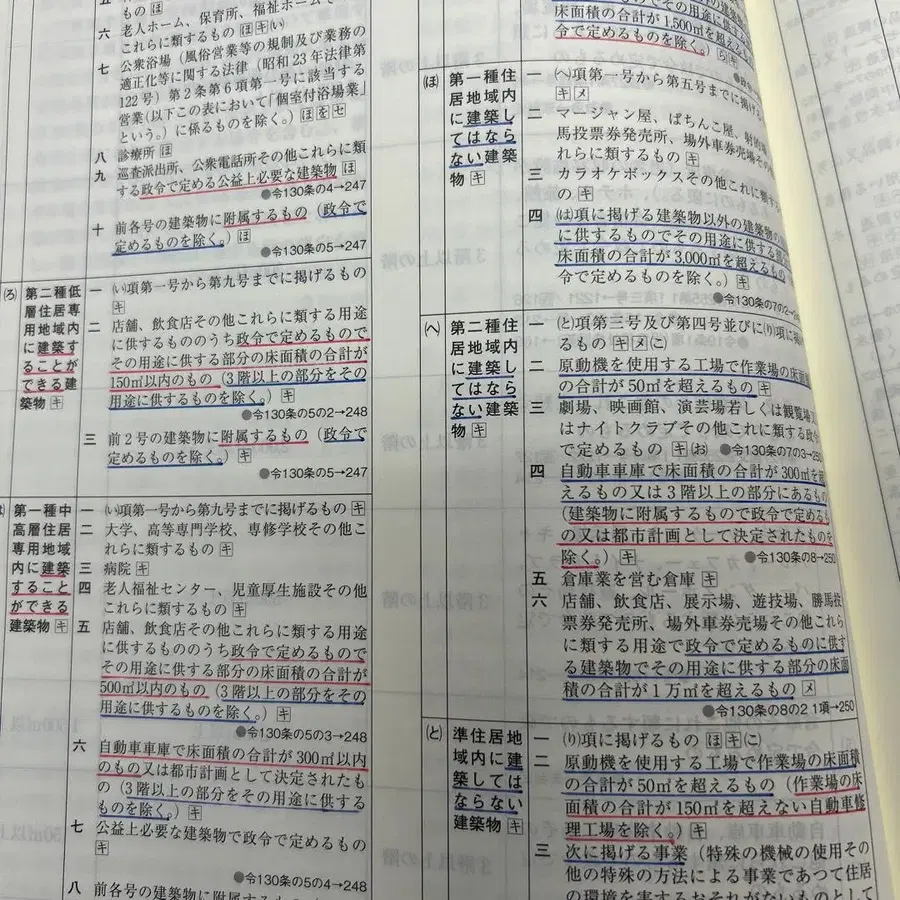 五
ものほ
六 老人ホーム、保育所、福祉ホーム
これらに類するものほキい
七 公衆浴場（風俗営業等の規制及び業務の
適正化等に関する法律（昭和23年法律第
122号）第2条第6項第一号に該当する
営業（以下この表において「個室付浴場業」
という。）に係るものを除く。）ほをセ
八 診療所ほ
九 巡査派出所、公衆電話所その他これらに類
する政令で定める公益上必要な建築物ほ
●令130条の4→247
十 前各号の建築物に附属するもの（政令で
定めるものを除く。）ほ
●令130条の5→247
(ろ) 第二種低
層住居専
用地域内
に建築す
ることが
できる建
築物キ
一 (い)項第一号から第九号までに掲げるもの
キ
二 店舗、飲食店その他これらに類する用途
に供するもののうち政令で定めるもので
その用途に供する部分の床面積の合計が
150㎡以内のもの（3階以上の部分をその
用途に供するものを除く。）キ
●令130条の5の2→248
三 前2号の建築物に附属するもの（政令で
定めるものを除く。）キ
●令130条の5→247
第一種中
高層住居
専用地域
内に建築
すること
ができる
建築物キ
一 (い)項第一号から第九号までに掲げるものキ
二 大学、高等専門学校、専修学校その他こ
れらに類するものキ
三 病院キ
四 老人福祉センター、児童厚生施設その他
これらに類するものキ
五 店舗、飲食店その他これらに類する用途
に供するもののうち政令で定めるもので
その用途に供する部分の床面積の合計が
500㎡以内のもの（3階以上の部分をその
用途に供するものを除く。）キ
●令130条の5の3→248
六 自動車車庫で床面積の合計が300㎡以内
のもの又は都市計画として決定されたも
の（3階以上の部分をその用途に供する
ものを除く。）キ
七 公益上必要な建築物で政令で定めるもの
キ
●令130条の5の4→248
八 前各号の建築物に附属するもの
床面積の合計が1,500㎡を超える
令で定めるものを除く。）らキ
(ほ) 第一種住
居地域内
に建築し
てはなら
ない建築
物キ
一 (へ)項第一号から第五号までに掲げる
キメ
二 マージャン屋、ぱちんこ屋、射的場
馬投票券発売所、場外車券売場その
れらに類するものキ
三 カラオケボックスその他これに類する
のキ
四 (は)項に掲げる建築物以外の建築物の
に供するものでその用途に供する部
床面積の合計が3,000㎡を超えるもの
令で定めるものを除く。）キ
●令130条の7の2→
(へ) 第二種住
居地域内
に建築し
てはなら
ない建築
物キ
一 (と)項第三号及び第四号並びに(り)項に掲
るものキメ(に)
二 原動機を使用する工場で作業場の床面
の合計が50㎡を超えるものキ
三 劇場、映画館、演芸場若しくは観覧場
はナイトクラブその他これに類する政
で定めるものキ(お) ●令130条の7の3→250
四 自動車車庫で床面積の合計が300㎡を超
えるもの又は3階以上の部分にあるもの
（建築物に附属するもので政令で定めるも
の又は都市計画として決定されたものを
除く。）キ
●令130条の8→250
五 倉庫業を営む倉庫キ
六 店舗、飲食店、展示場、遊技場、勝馬投
票券発売所、場外車券売場その他これら
に類する用途で政令で定めるものに供す
る建築物でその用途に供する部分の床面
積の合計が1万㎡を超えるものメ
●令130条の8の2 1項→250
(と) 準住居地
域内に建
築しては
ならない
建築物キ
一 (り)項に掲げるものほキ(に)
二 原動機を使用する工場で作業場の床面積
の合計が50㎡を超えるもの（作業場の床
面積の合計が150㎡を超えない自動車修
理工場を除く。）キ
三 次に掲げる事業（特殊の機械の使用その
他の特殊の方法による事業であつて住居
の環境を害するおそれがないものとして